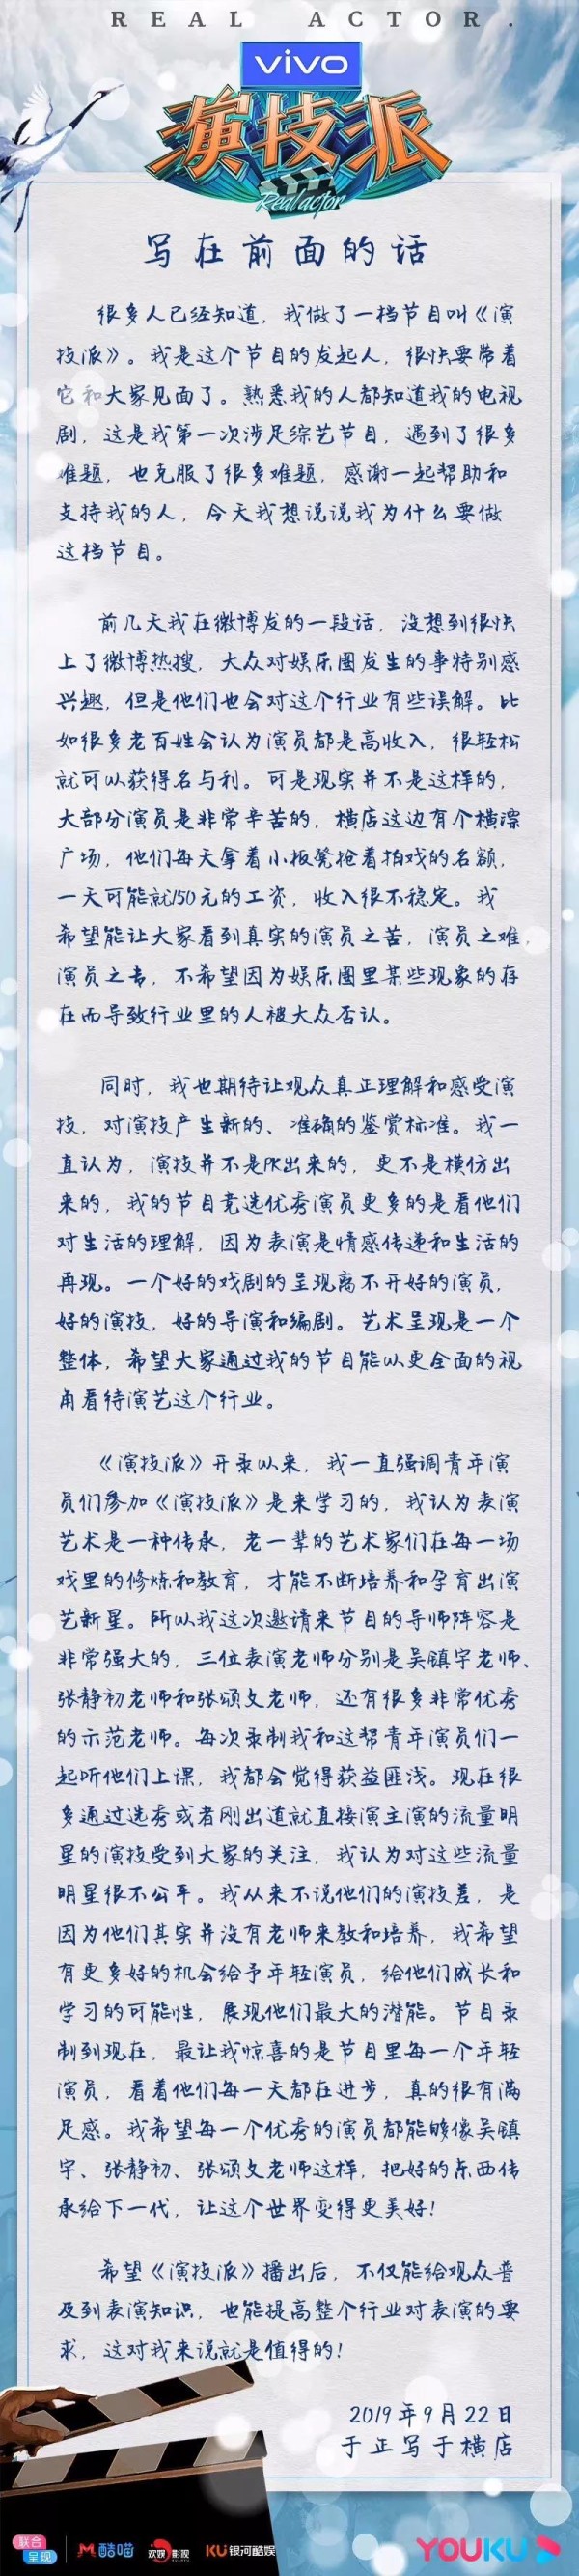 REAL ACTOR.
vivo
演技派
Real actor
写在前面的话
很多人已经知道，我做了一档节目叫《演
技派》。我是这个节目的发起人，很快要带着
它和大家见面了。熟悉我的人都知道我的电视
剧，这是我第一次涉足综艺节目，遇到了很多
难题，也克服了很多难题，感谢一起帮助和
支持我的人，今天我想说说我为什么要做
这档节目。
前几天我在微博发的一段话，没想到很快
上了微博热搜，大众对娱乐圈发生的事特别感
兴趣，但是他们也会对这个行业有些误解。比
如很多老百姓会认为演员都是高收入，很轻松
就可以获得名与利。可是现实并不是这样的，
大部分演员是非常辛苦的，横店这边有个横漂
广场，他们每天拿着小板凳抢着拍戏的名额，
一天可能就150元的工资，收入很不稳定。我
希望能让大家看到真实的演员之苦，演员之难，
演员之专，不希望因为娱乐圈里某些现象的存
在而导致行业里的人被大众否认。
同时，我也期待让观众真正理解和感受演
技，对演技产生新的、准确的鉴赏标准。我一
直认为，演技并不是PK出来的，更不是模仿出
来的，我的节目竞选优秀演员更多的是看他们
对生活的理解，因为表演是情感传递和生活的
再现。一个好的戏剧的呈现离不开好的演员，
好的演技，好的导演和编剧。艺术呈现是一个
整体，希望大家通过我的节目能以更全面的视
角看待演艺这个行业。
《演技派》开录以来，我一直强调青年演
员们参加《演技派》是来学习的，我认为表演
艺术是一种传承，老一辈的艺术家们在每一场
戏里的修炼和教育，才能不断培养和孕育出演
艺新星。所以我这次邀请来节目的导师阵容是
非常强大的，三位表演老师分别是吴镇宇老师、
张静初老师和张颂文老师，还有很多非常优秀
的示范老师。每次录制我和这帮青年演员们一
起听他们上课，我都会觉得获益匪浅。现在很
多通过选秀或者刚出道就直接演主演的流量明
星的演技受到大家的关注，我认为对这些流量
明星很不公平。我从来不说他们的演技差，是
因为他们其实并没有老师来教和培养，我希望
有更多好的机会给予年轻演员，给他们成长和
学习的可能性，展现他们最大的潜能。节目录
制到现在，最让我惊喜的是节目里每一个年轻
演员，看着他们每一天都在进步，真的很有满
足感。我希望每一个优秀的演员都能够像吴镇
宇、张静初、张颂文老师这样，把好的东西传
承给下一代，让这个世界变得更美好！
希望《演技派》播出后，不仅能给观众普
及到表演知识，也能提高整个行业对表演的要
求，这对我来说就是值得的！
2019年9月22日
于正写于横店
联合
呈现
酷喵
欢娱影视
KU银河酷娱
YOUKU